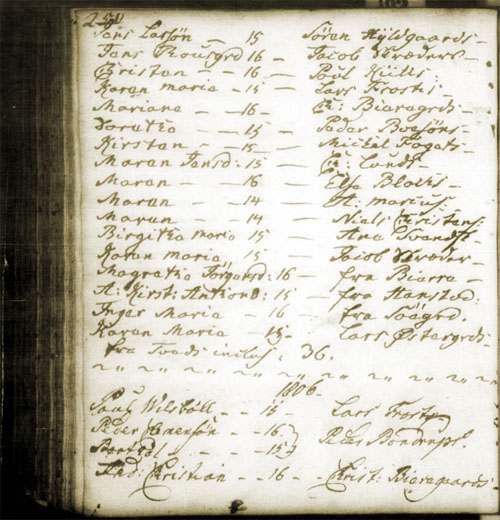 Lars Larsøn - 15 Søren Hyldgaards -
Jens Rousgrd - 16 - Jacob Skreders -
Christen - - 16 - Poul Kiells:
Karen maria - 15 - Lars Frosts
Mariane - - 16 - Chr: Biaragrds -
Dorathe - - 15 - Peder Boesøns -
Kirsten - - 15 - Mickel Fogats -
Maren Jensd: 15 - Chr: Lunds -
Maren - - 16 - Else Blochs -
Maren - - 14 - A: marius
Maren - - 14 - Niels Christens:
Birgitha maria 15 - Ana Svends -
Karen maria 15 - Jacob Skreder -
Magretha Jørgensd: 16 - fra Biarre -
A: Kirst: Antond: 15 - fra Hansted:
Inger Maria - 16 - fra Søegrd.
Karen Maria - 15 - Lars Østergrds
fra Tveds inclus: 36.
1806
Poul Wilsbøll - - 15 - Lars Frosts
Peder - - 16 Peder Bondrups.
- - 15
And: Christian - - 16 - Christ: Biaragaards